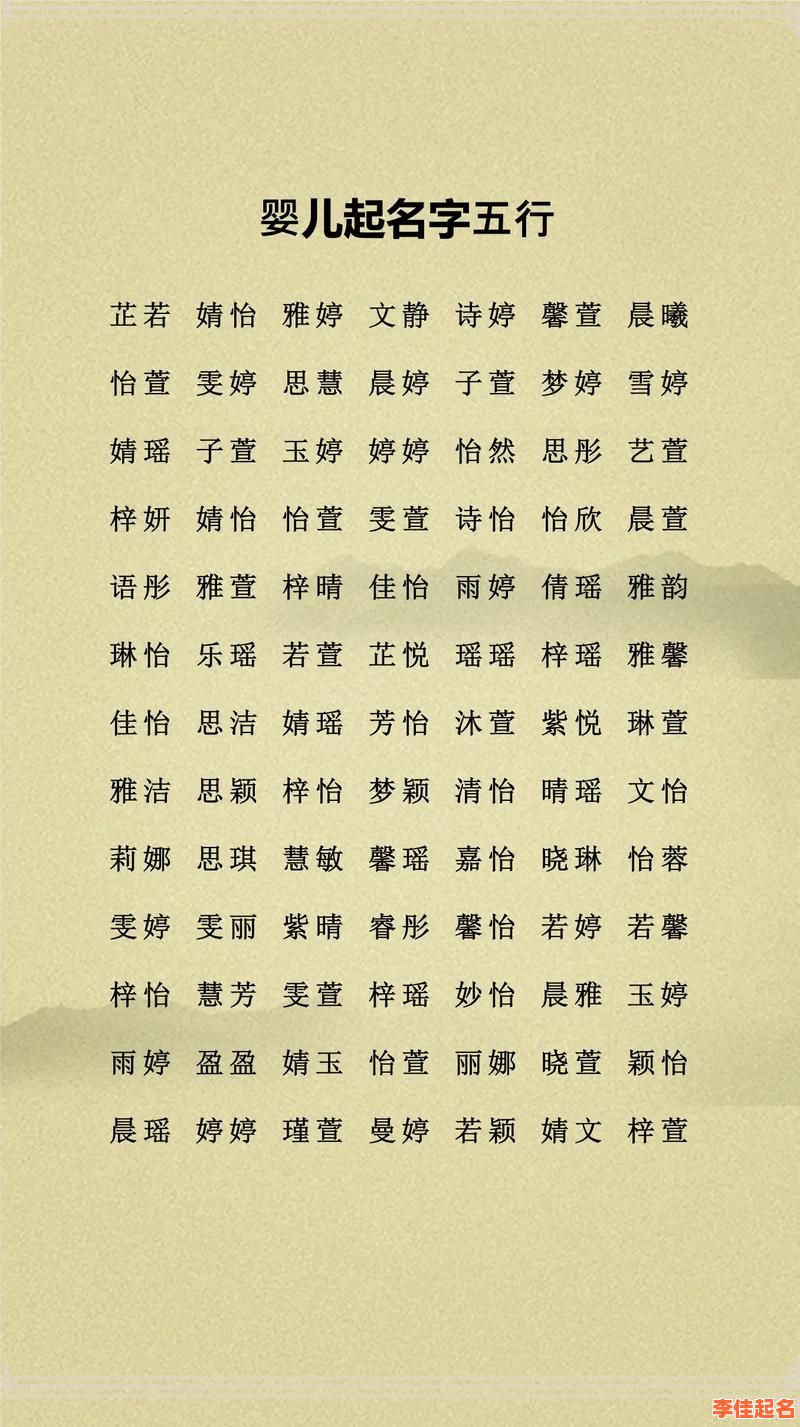 婴儿起名字五行
芷若 婧怡 雅婷 文静 诗婷 馨萱 晨曦
怡萱 雯婷 思慧 晨婷 子萱 梦婷 雪婷
婧瑶 子萱 玉婷 婷婷 怡然 思彤 艺萱
梓妍 婧怡 怡萱 雯萱 诗怡 怡欣 晨萱
语彤 雅萱 梓晴 佳怡 雨婷 倩瑶 雅韵
琳怡 乐瑶 若萱 芷悦 瑶瑶 梓瑶 雅馨
佳怡 思洁 婧瑶 芳怡 沐萱 紫悦 琳萱
雅洁 思颖 梓怡 梦颖 清怡 晴瑶 文怡
莉娜 思琪 慧敏 馨瑶 嘉怡 晓琳 怡蓉
雯婷 雯丽 紫晴 睿彤 馨怡 若婷 若馨
梓怡 慧芳 雯萱 梓瑶 妙怡 晨雅 玉婷
雨婷 盈盈 婧玉 怡萱 丽娜 晓萱 颖怡
晨瑶 婷婷 瑾萱 曼婷 若颖 婧文 梓萱
李佳起名